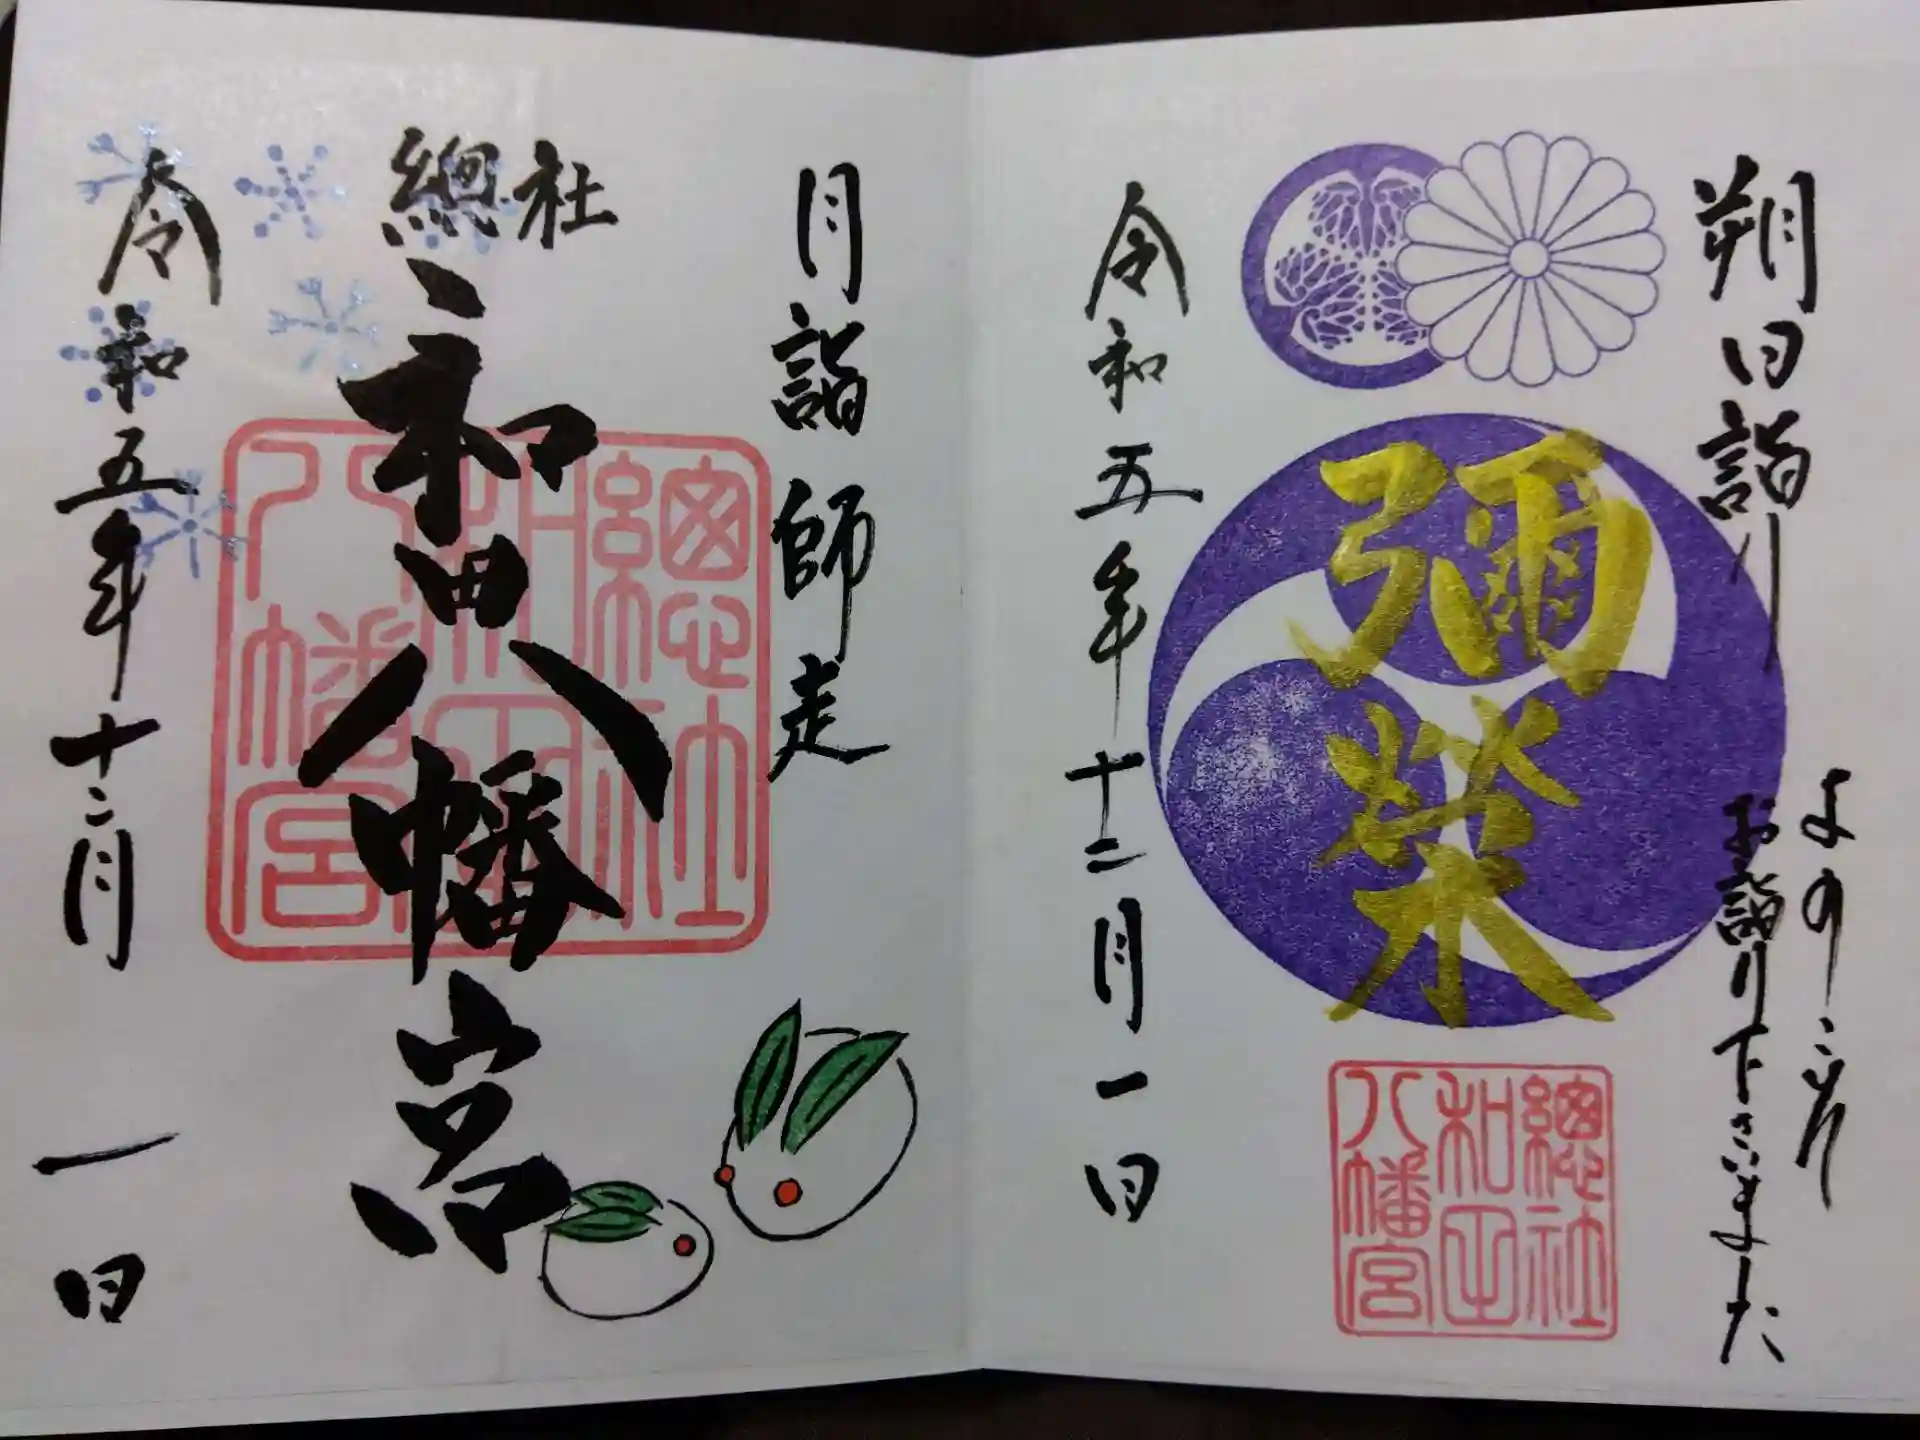 朔日詣り
よのこゝり
お詣り下さいました
彌榮
總社
和田
八幡宮
令和五年十二月一日
月詣 師走
總社
和田八幡宮
總社
和田
八幡宮
令和五年十二月 一日